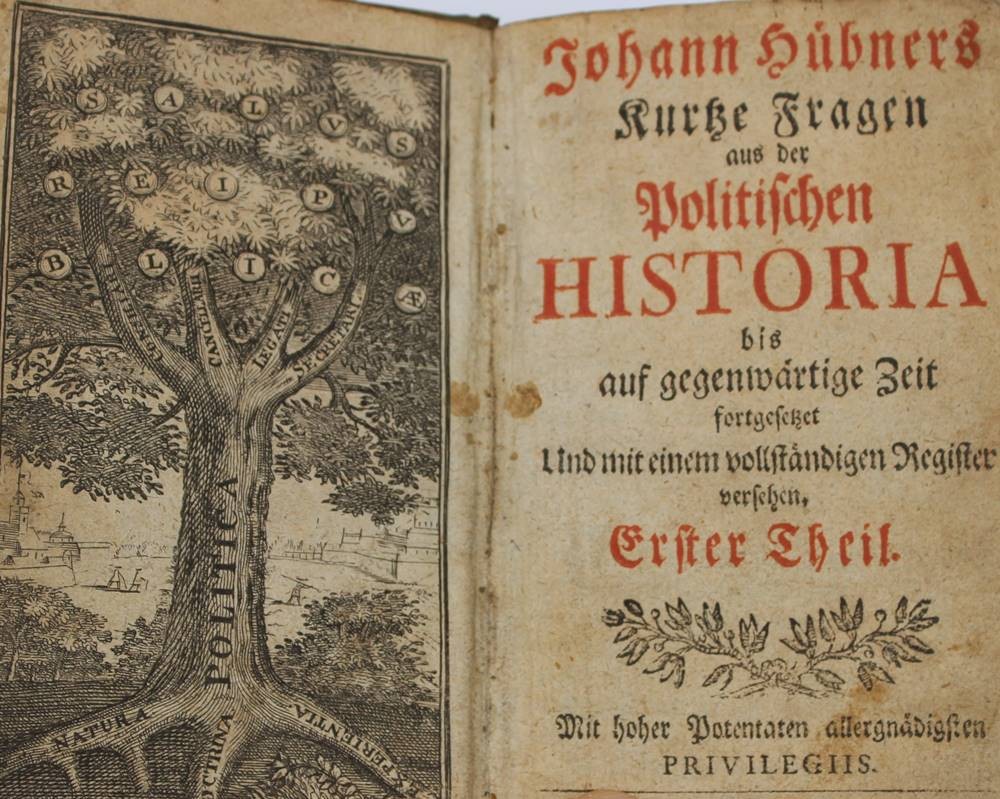 S A L V S
R E I P V
B L I C Æ
CAROLI
LEGATI
SECRETARI
POLITICA
NATURA
DOCTRINA
EXPERIENTIA.
Johann Hübners
Kurtze Fragen
aus der
Politischen
HISTORIA
bis
auf gegenwärtige Zeit
fortgesetzet
Und mit einem vollständigen Register
versehen,
Erster Theil.
Mit hoher Potentaten allergnädigsten
PRIVILEGIIS.